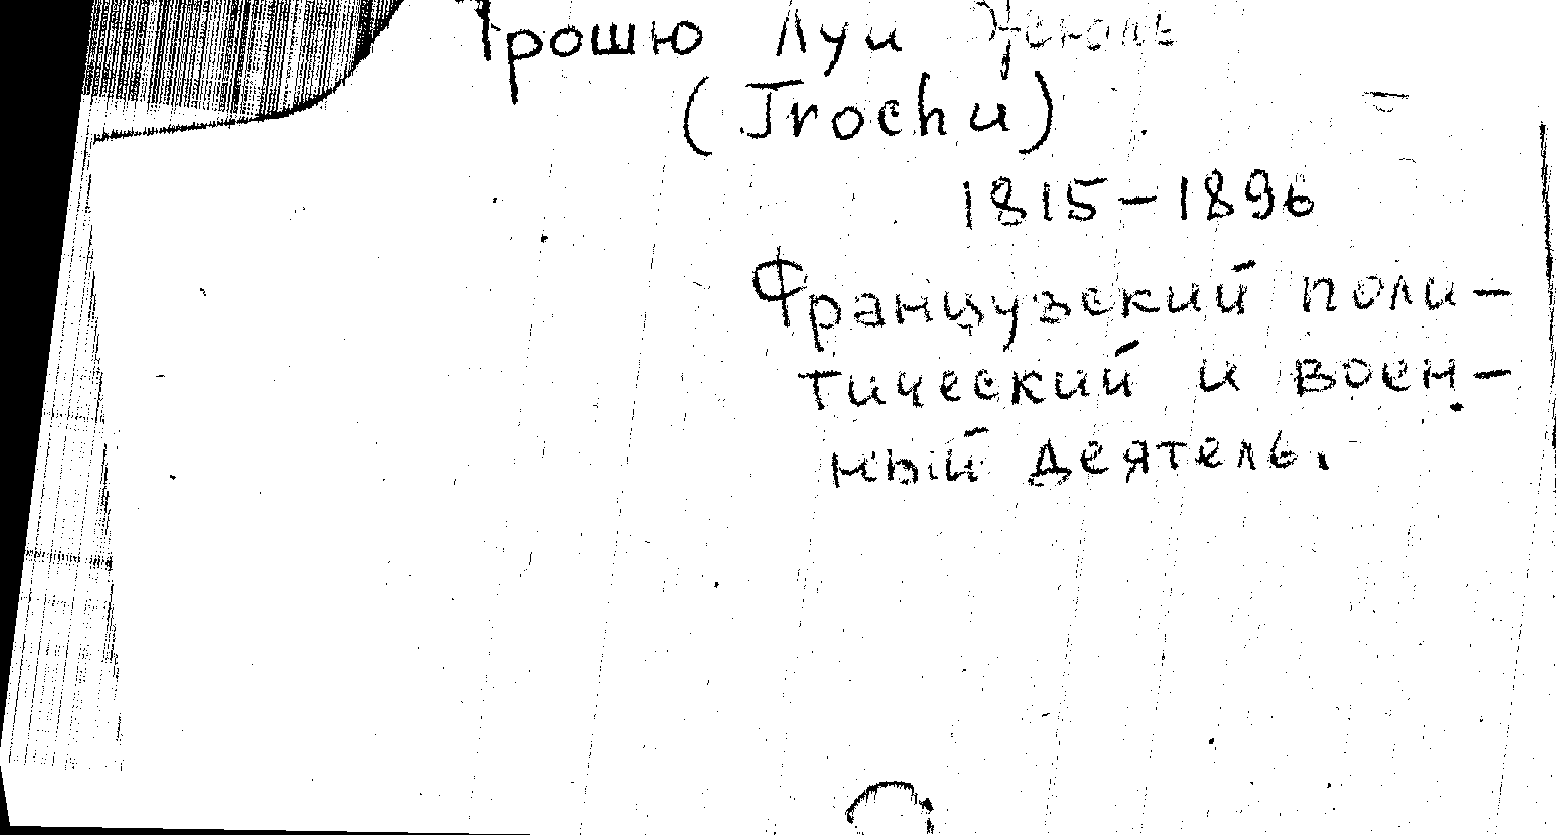 Трошю Луи Жюль
(Trochu)
1815-1896
Французский поли-
тический и воен-
ный деятель.